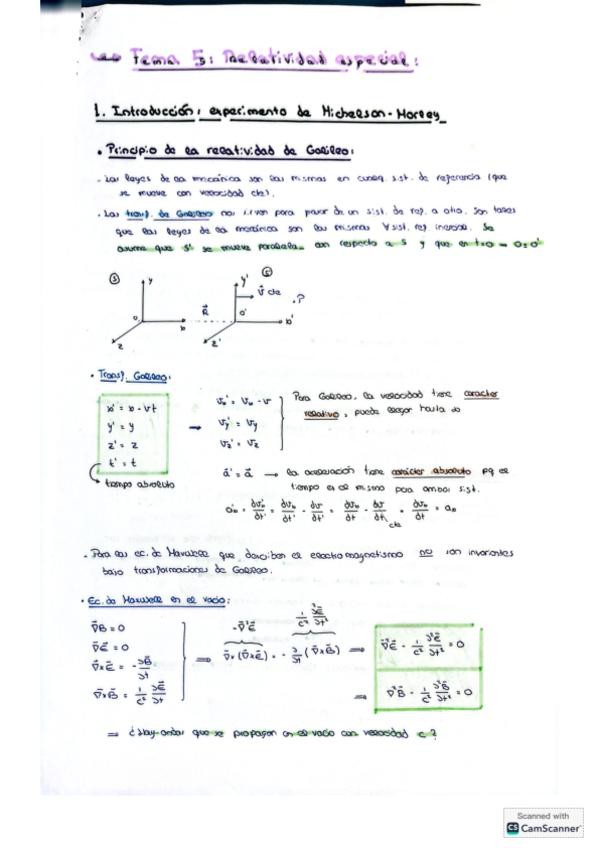 Tema 5: Relatividad especial:
1. Introducción: experimento de Michelson-Morley
• Principio de la relatividad de Galileo:
- Las leyes de la mecánica son las mismas en cualq. sist. de referencia (que
se mueve con velocidad cte).
- Las transf. de Galileo nos sirven para pasar de un sist. de ref. a otro. Son tales
que las leyes de la mecánica son las mismas ∀ sist. ref. inercial. Se
asume que S' se mueve paralela con respecto a S y que en t=0 → O≡O'
S y O x z R⃗
S' y' v⃗ cte . ? O' x' z'
• Transf. Galileo:
x' = x - vt
y' = y
z' = z
t' = t
tiempo absoluto
→ vx' = vx - v
vy' = vy
vz' = vz
Para Galileo, la velocidad tiene carácter
relativo, puede llegar hasta ∞
a⃗' = a⃗ → la aceleración tiene carácter absoluto pq el
tiempo es el mismo para ambos sist.
a'x = dv'x/dt' = dvx/dt' - dv/dt' = dvx/dt - dv/dt = dvx/dt = ax
cte
- Para las ec. de Maxwell que describen el electromagnetismo no son invariantes
bajo transformaciones de Galileo.
• Ec. de Maxwell en el vacío:
∇⃗B⃗ = 0
∇⃗E⃗ = 0
∇⃗×E⃗ = -∂B⃗/∂t
∇⃗×B⃗ = 1/c² ∂E⃗/∂t
-∇⃗²E⃗ 1/c² ∂²E⃗/∂t²
⇒ ∇⃗×(∇⃗×E⃗) = - ∂/∂t (∇⃗×B⃗) ⇒ ∇⃗²E⃗ - 1/c² ∂²E⃗/∂t² = 0
⇒ ∇⃗²B⃗ - 1/c² ∂²B⃗/∂t² = 0
⇒ ¿Hay ondas que se propagan en el vacío con velocidad c?
Scanned with
CS CamScanner